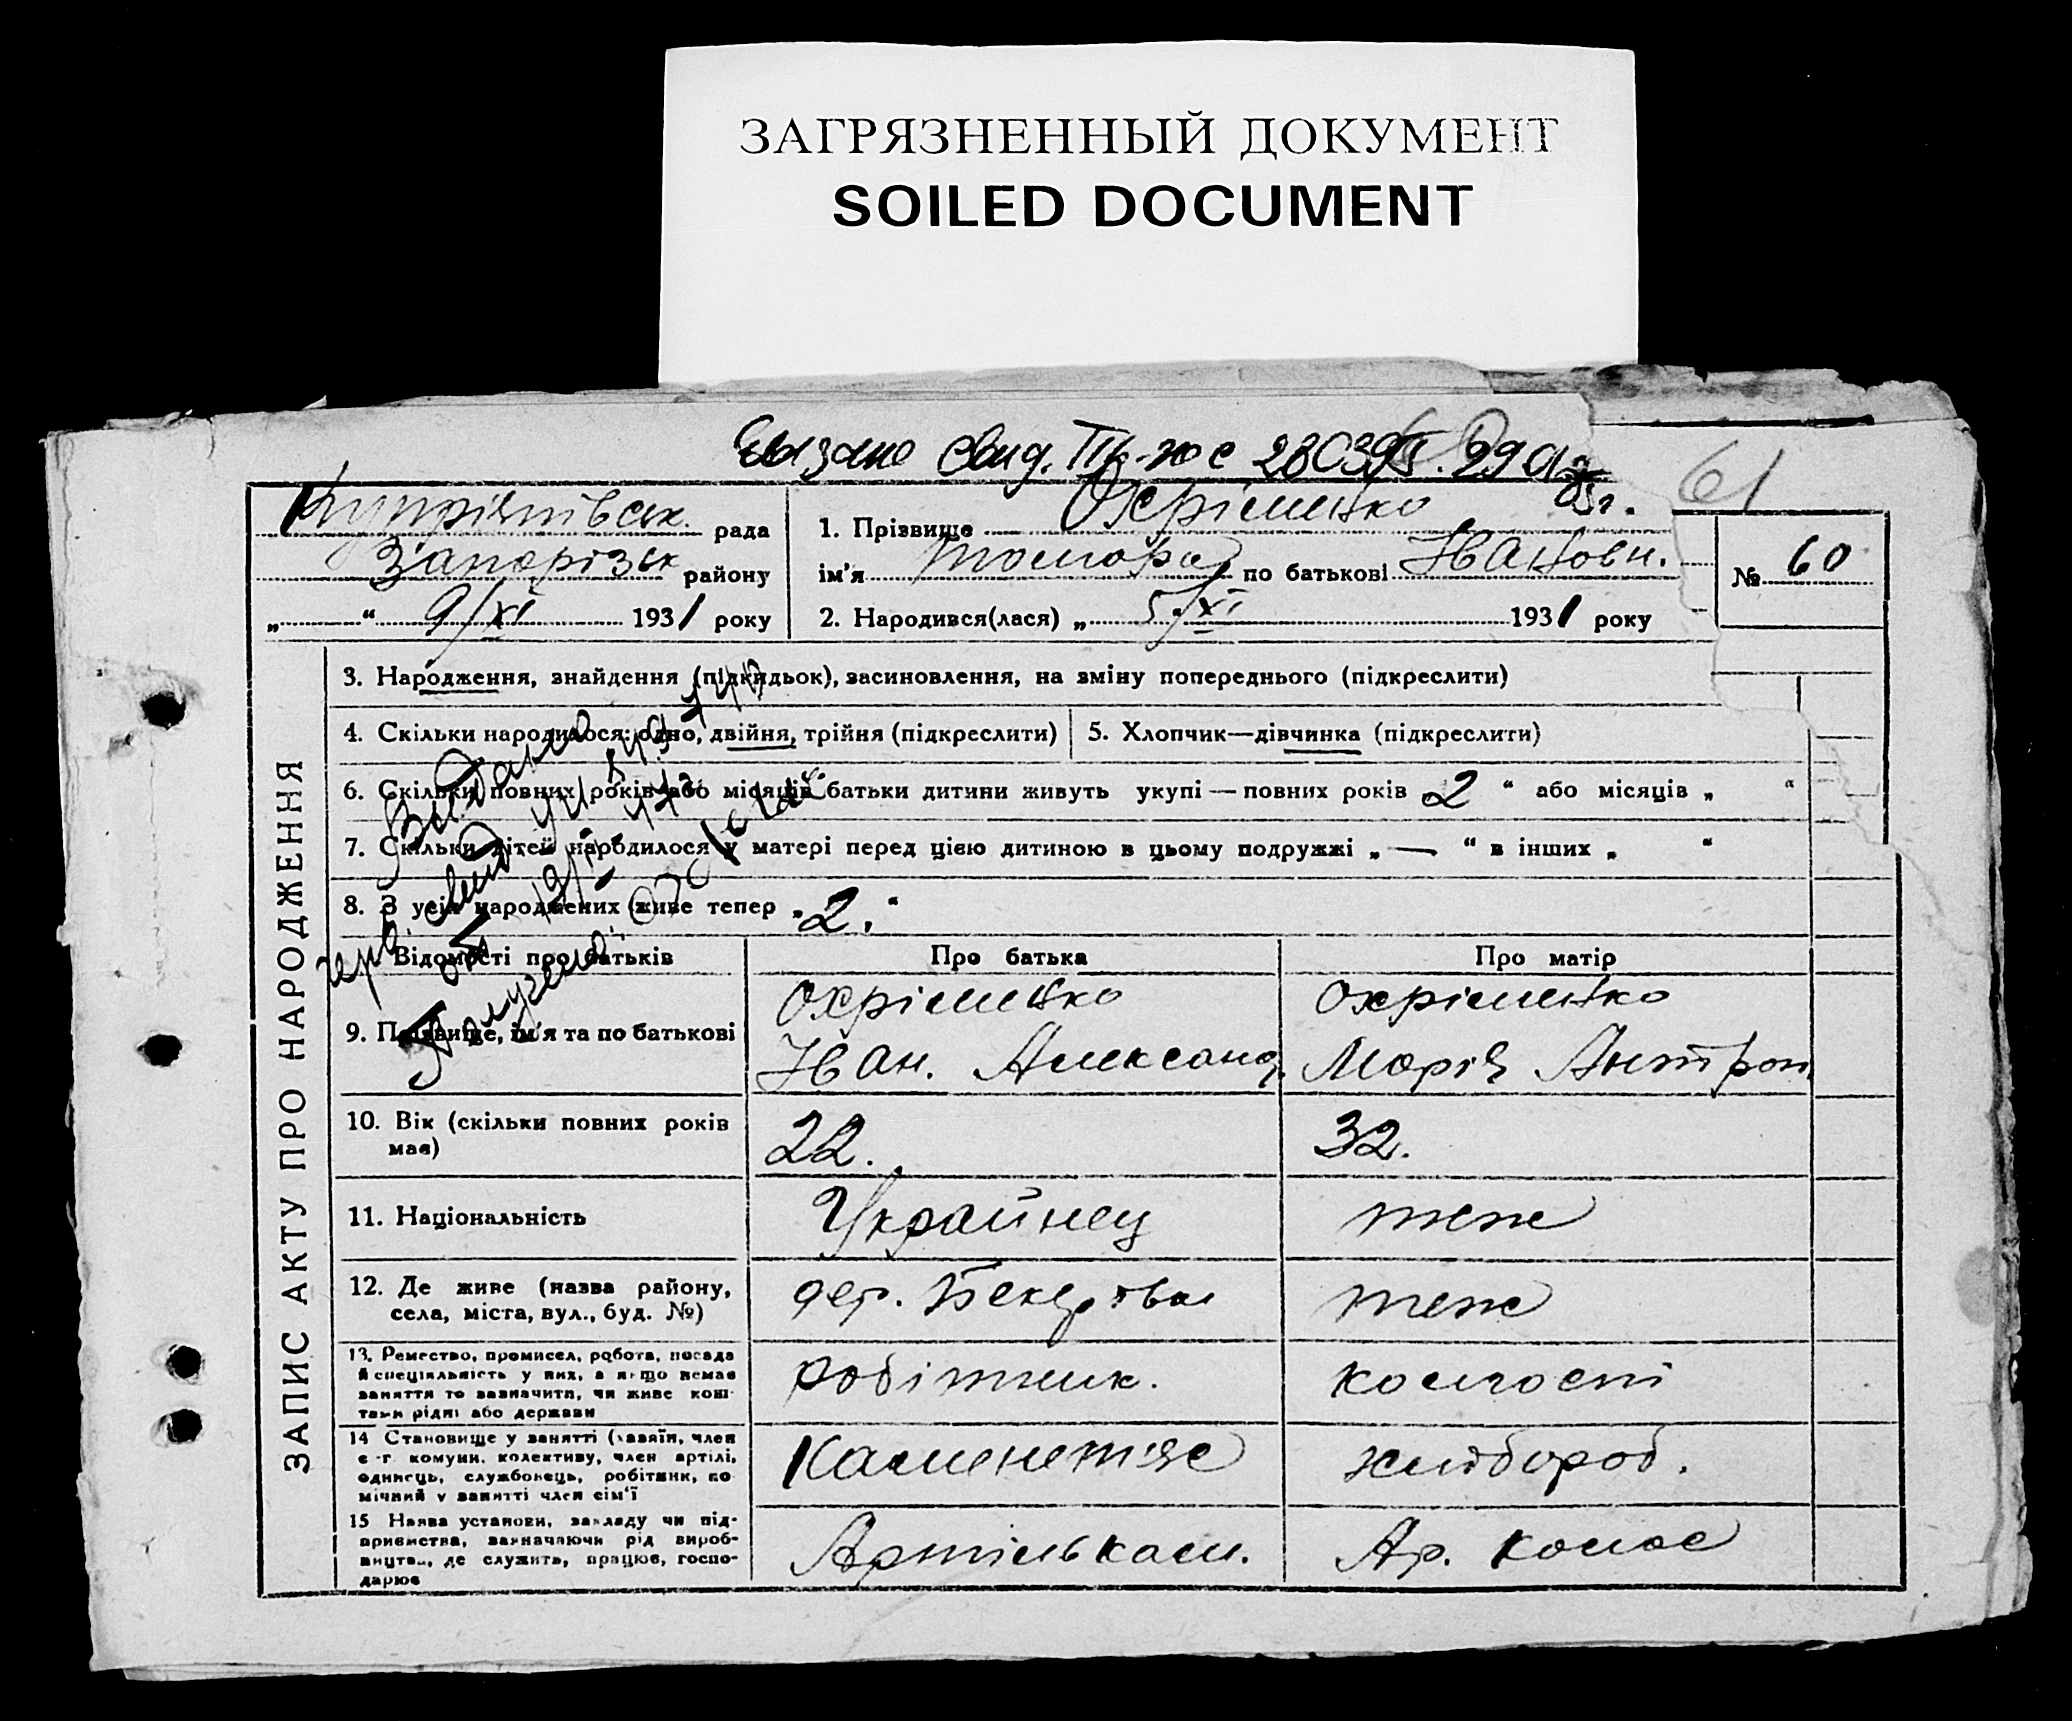 ЗАГРЯЗНЕННЫЙ ДОКУМЕНТ
SOILED DOCUMENT
свид.
61
Купріянівськ. рада
Запорізьк району
„ “ 9/XI 1931 року
1. Прізвище Охріменко
ім'я Томора по батькові Івановн.
2. Народився(лася) „ 5/XI 1931 року
№ 60
ЗАПИС АКТУ ПРО НАРОДЖЕННЯ
3. Народження, знайдення (підкидьок), засиновлення, на зміну попереднього (підкреслити)
4. Скільки народилося: одно, двійня, трійня (підкреслити)
5. Хлопчик—дівчинка (підкреслити)
6. Скільки повних років або місяців батьки дитини живуть укупі — повних років 2 “ або місяців „ “
7. Скільки дітей народилося у матері перед цією дитиною в цьому подружжі „ — “ в інших „ “
8. З усіх народжених живе тепер „ 2. “
Відомості про батьків
Про батька
Про матір
9. Прізвище, ім'я та по батькові
Охріменко
Іван. Александ.
Охріменко
Марія Антрон
10. Вік (скільки повних років
має)
22.
32.
11. Національність
Украйнец
теж
12. Де живе (назва району,
села, міста, вул., буд. №)
дер.
теж
13. Ремество, промисел, робота, посада
й спеціяльність у них, а якщо немає
заняття то зазначити, чи живе кош-
тами рідні або держави
робітник.
14 Становище у занятті (хазяїн, член
с.-г. комуни, колективу, член артілі,
одинець, службовець, робітник, по-
мічний у занятті член сім'ї
хлібороб.
15 Назва установи, закладу чи під-
приємства, зазначаючи рід вироб-
ництва, де служить, працює, госпо-
дарює
Артіль кам.
Ар. колос